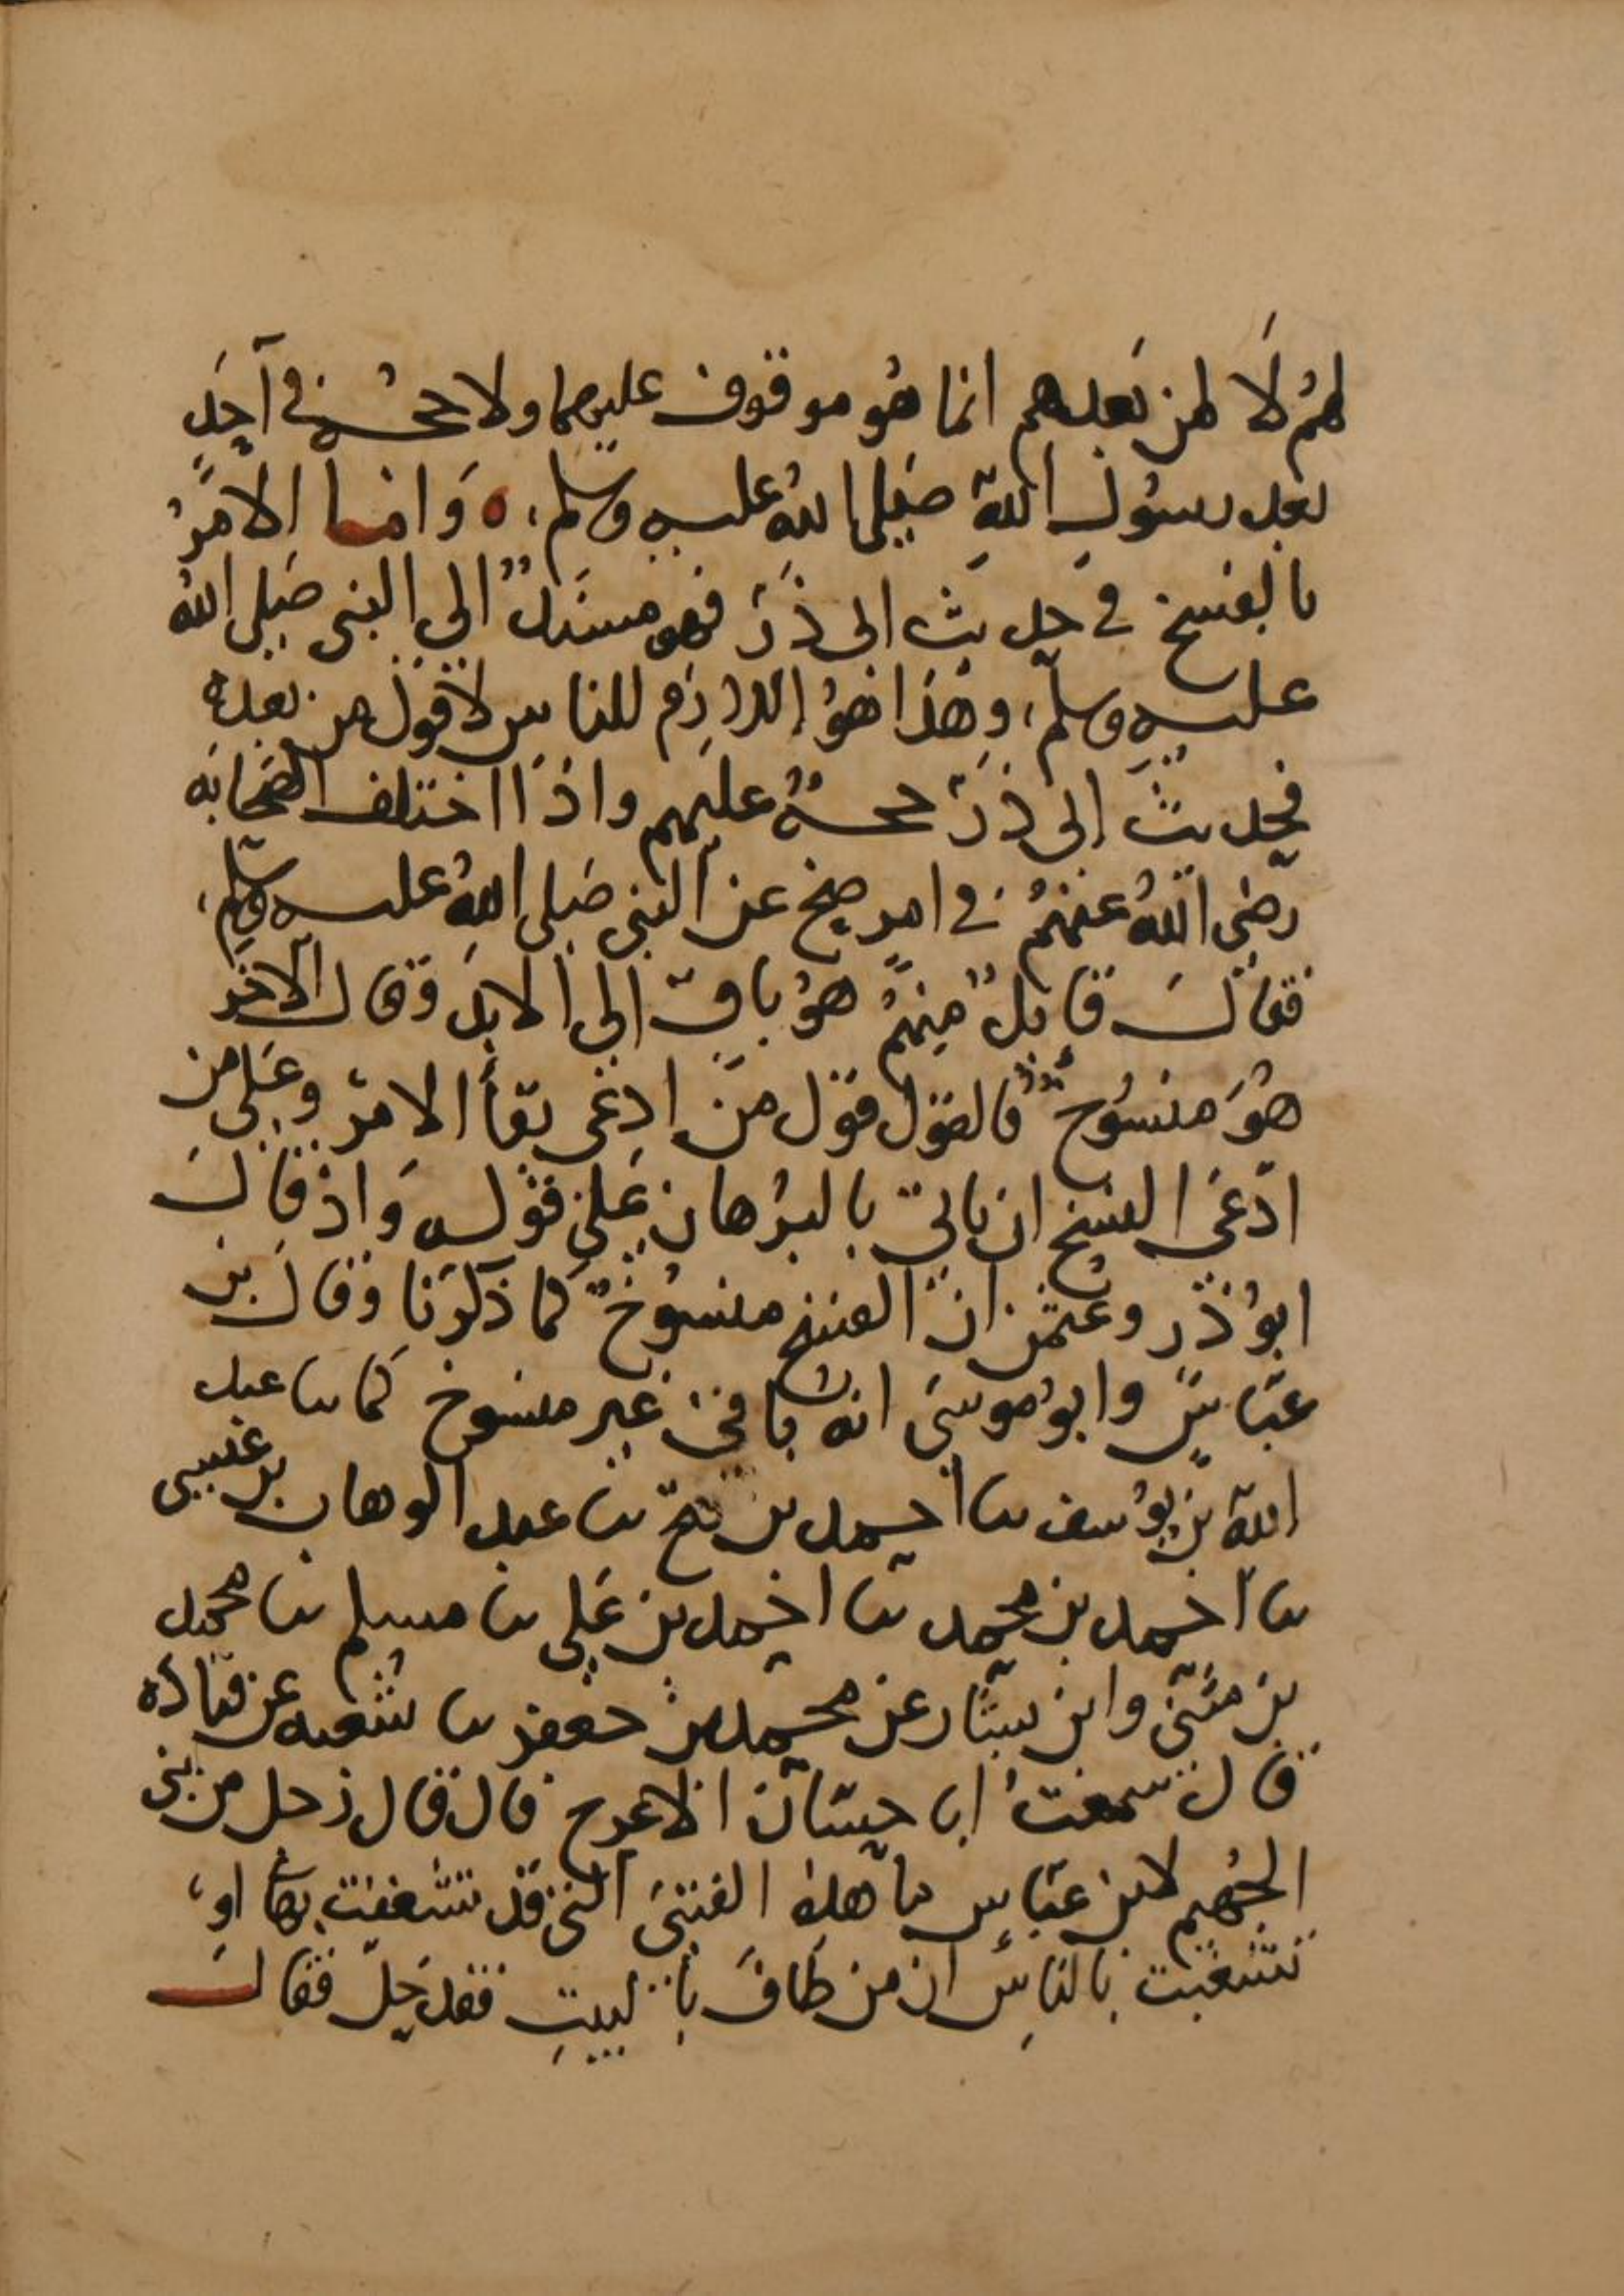 لهم لا لمن بعدهم انما هو موقوف عليهما ولا حجة في آحد
بعد رسول الله صلى الله عليه وسلم ، ه وانما الامر
بالفسخ في حديث ابي ذر فهو مسند الى النبي صلى الله
عليه وسلم ، وهذا هو اللازم للناس لا قول من بعده
فحديث ابي ذر حجة عليهم واذا اختلف الصحابه
رضي الله عنهم في امر صح عن النبي صلى الله عليه وسلم ،
فقال قايل منهم هو باق الى الابد وقال الآخر
هو منسوخ فالقول قول من ادعى بقأ الامر وعلى من
ادعى النسخ ان ياتي بالبرهان على قوله واذ قال
ابو ذر وعثمن ان الفسخ منسوخ كما ذكرنا وقال بن
عباس وابو موسى انه باق غير منسوخ كما ںا عبد
الله بن يوسف ںا احمد بن فتح ںا عبد الوهاب بن عيسى
ںا احمد بن محمد ںا احمد بن علي ںا مسلم ںا محمد
بن مثنى وابن بشار عن محمد بن جعفر ںا شعبه عن قتاده
قال سمعت ابا حسان الاعرج قال قال رجل من بني
الجهيم لابن عباس ما هذه الفتيى التي قد تشغفت بها او ،
تشغبت بالناس ان من طاف بالبيت فقد حل فقال